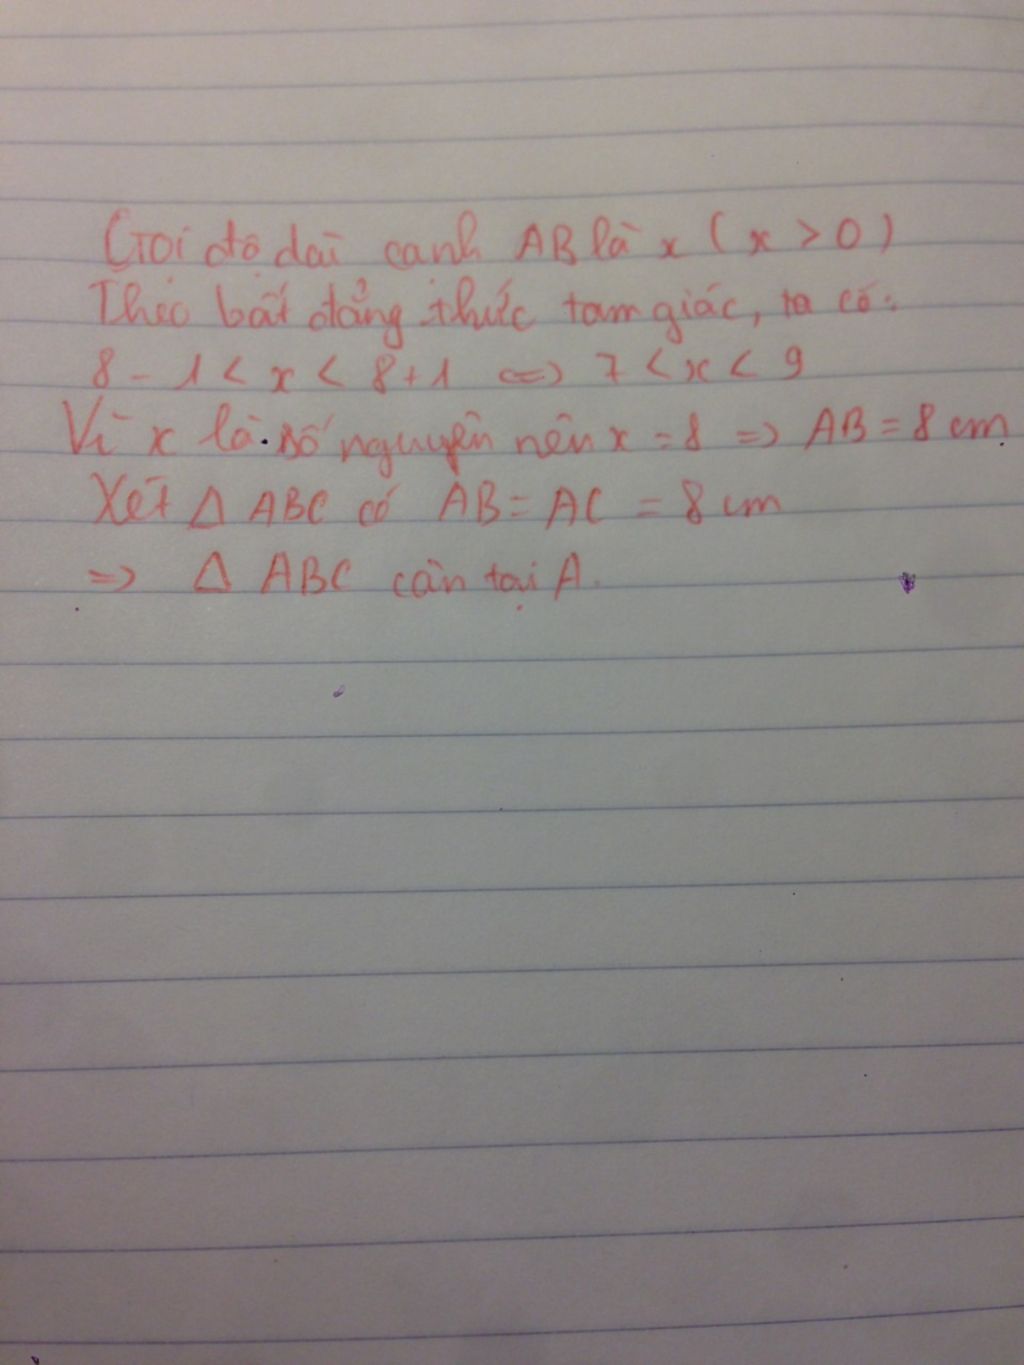 Gọi độ dài cạnh AB là x ( x > 0 )
Theo bất đẳng thức tam giác, ta có:
8 - 1 < x < 8 + 1 <=> 7 < x < 9
Vì x là số nguyên nên x = 8 => AB = 8 cm
Xét Δ ABC có AB = AC = 8 cm
=> Δ ABC cân tại A.